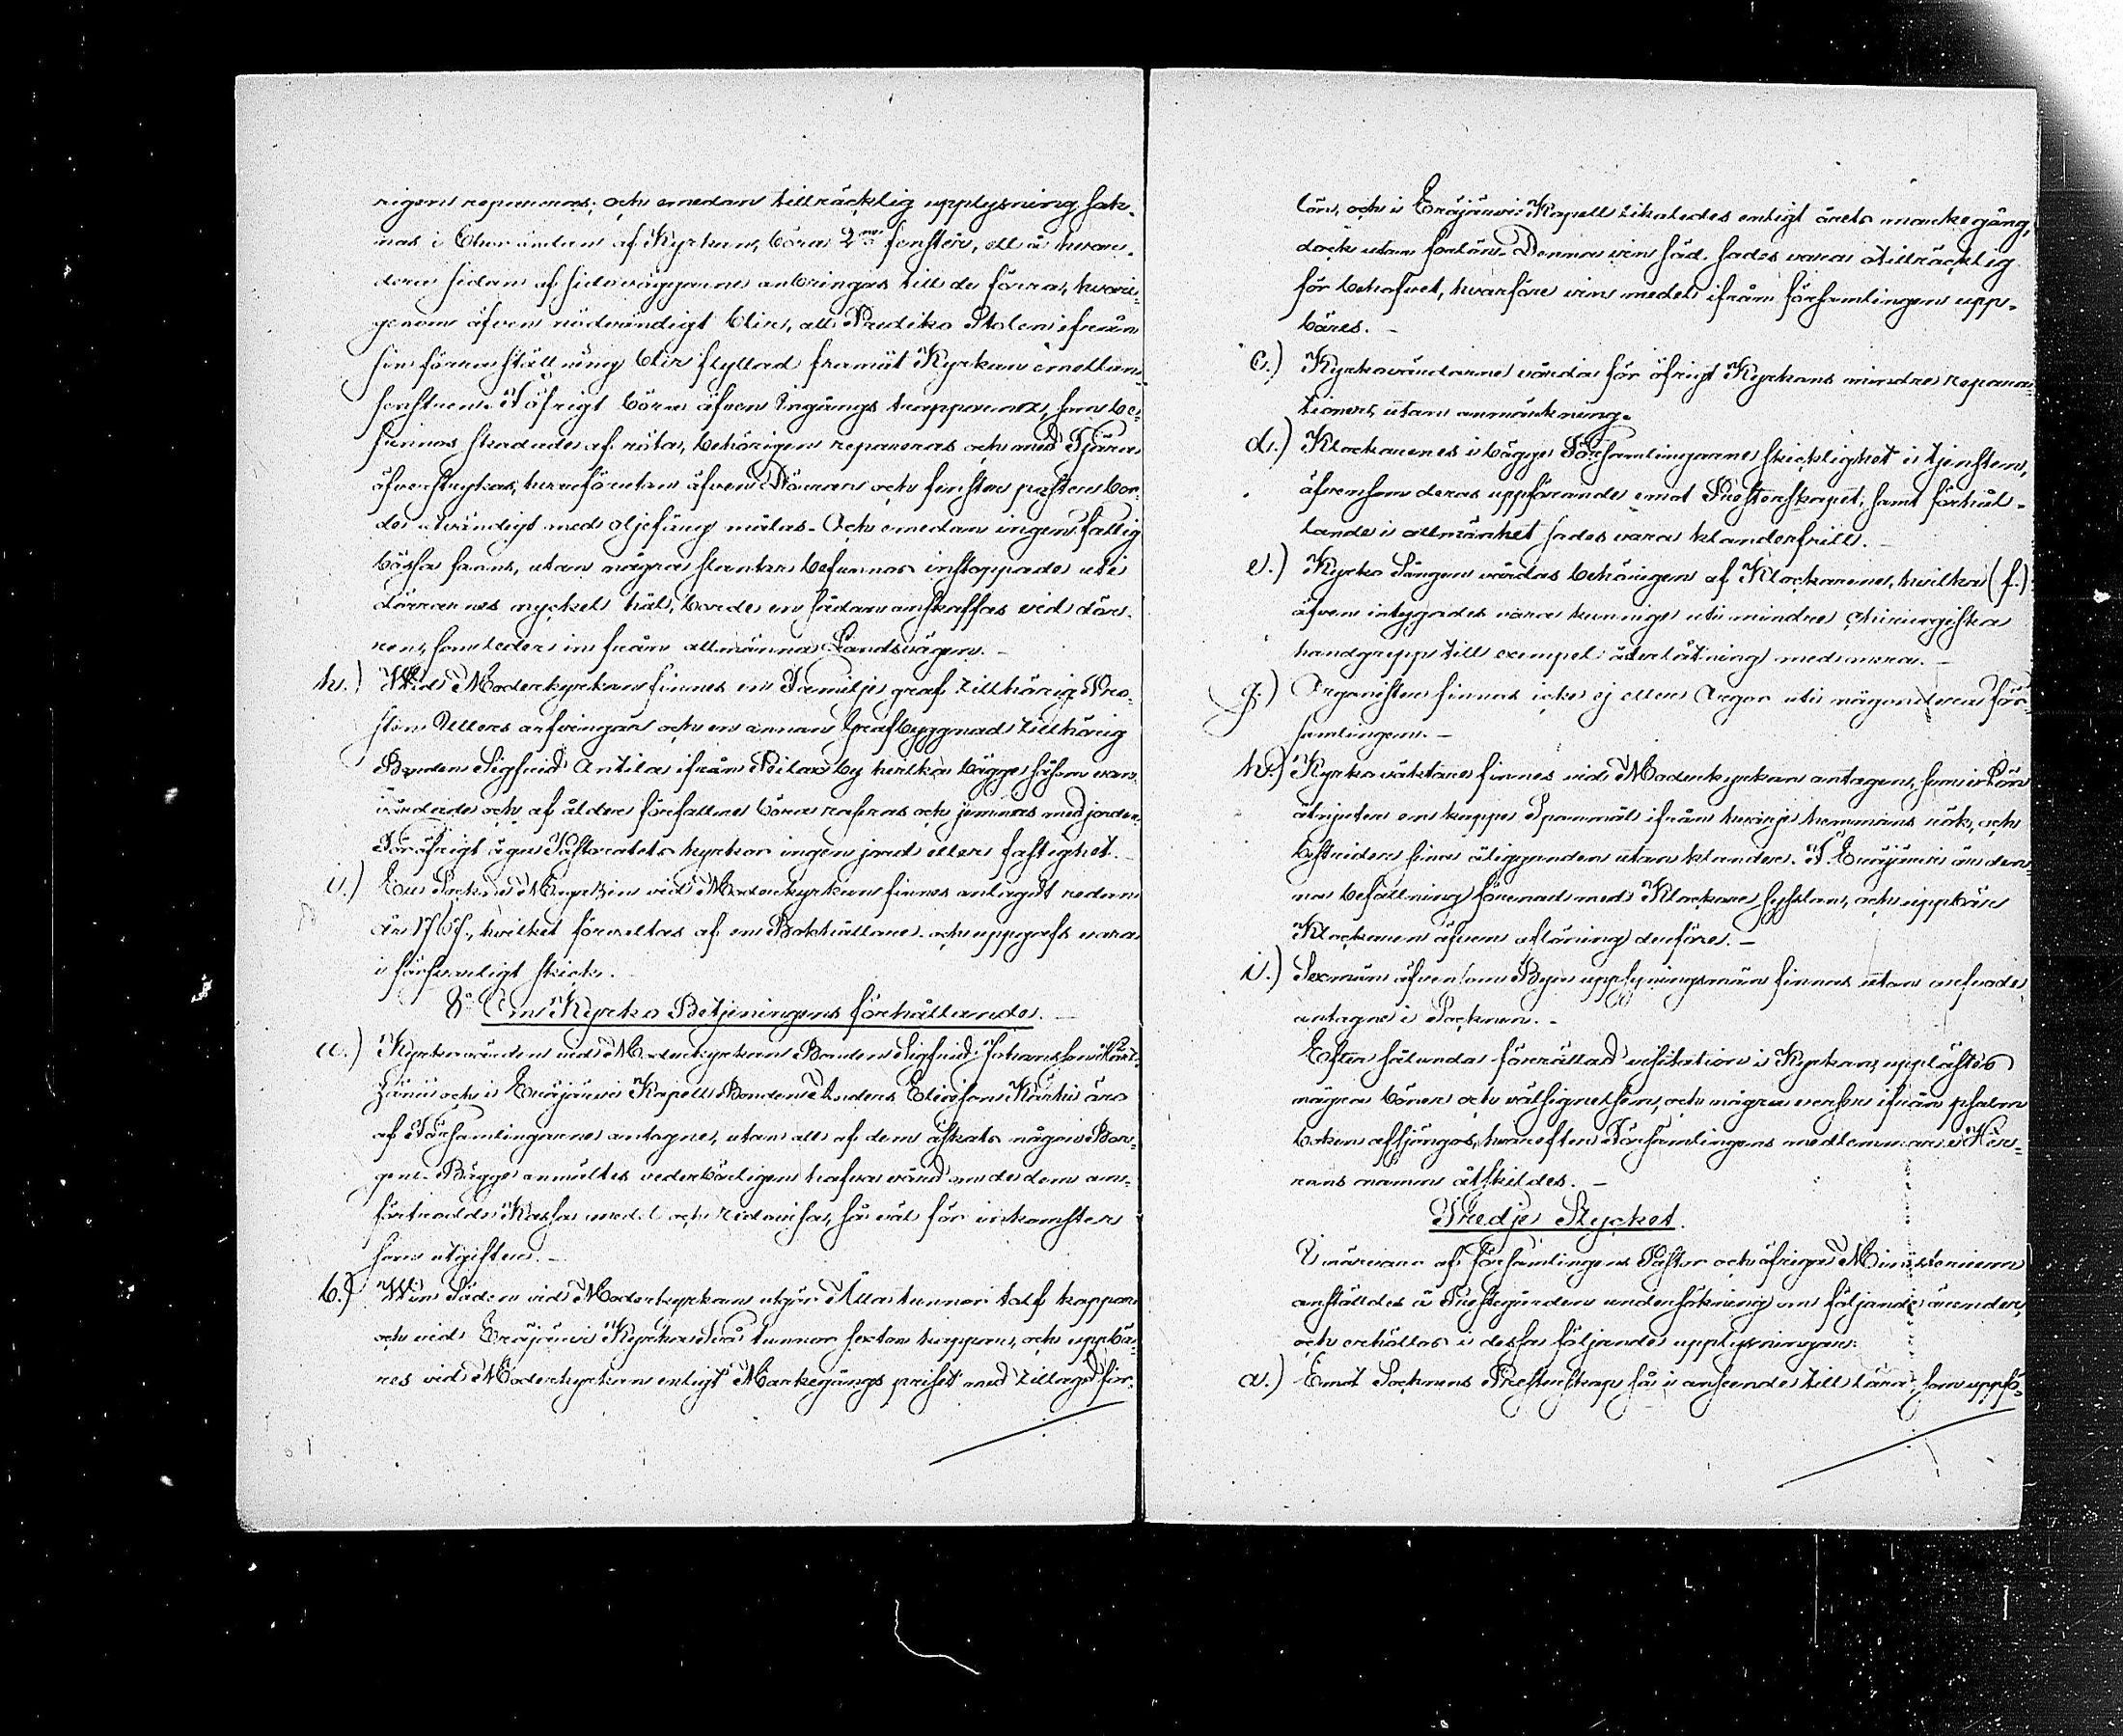 rigen repareras; och emedan tillräcklig upplysning sak-
nas i Chor ändan af Kyrkan, böra 2ne fenster, ett å hvar-
dera sidan af sidoväggarne anbringas till de förra, hvari-
genom äfven nödvändigt blir, att Prediko Stolen ifrån
sin förra ställning blir flyttad framåt Kyrkan emellan
fenstren. I öfrigt böra äfven Ingångs trapporne, som be-
funnos skadade af röta, behörigen repareras och med Tjära
äfverstrykas, hvarförutan äfven Dörrar och fenster poster bor-
de utvändigt med oljefärg målas. Och emedan ingen fattig
bössa fanns, utan några slantar befunnos instoppade uti
dörrarnes nyckel hål, borde en sådan anskaffas vid dör-
ren, som leder in från allmänna Landsvägen. -
h.) Wid Moderkyrkan finnes en Familje graf tillhörig Pro-
sten Ullers arfvingar och en annan Grafbyggnad tillhörig
Bonden Sigfrid Antila ifrån by hvilka bägge såsom van-
vårdade och af ålder förfallne böra raseras och jemnas med jorden.
För öfrigt äger Pastoratets kyrkor ingen jord eller fastighet.
i.) Ett Sockne Magazin vid Moderkyrkan finnes anlagdt redan
år 1767, hvilket förvaltas af en Bokhållare och uppgafs vara
i försvarligt skick.
8o Om Kyrko Betjeningens förhållande. -
a.) Kyrkovärden vid Moderkyrkan Bonden Sigfrid Johansson
och i Eräjärvi Kapell Bonden Anders Eliasson äro
af Församlingarne antagne, utan att af dem äskats någon Bor-
gen. Bägge anmältes vederbörligen hafva vård om de dem an-
förtrodde Kassa medel och redovisa, så väl för inkomster
som utgifter. -
b.) Win Säden vid Moderkyrkan utgör Åtta tunnor tolf kappar
och vid Eräjärvi Kyrka Två tunnor sexton kappar, och uppbä-
res vid Moderkyrkan enligt Markegångs priset med tillagd för-
lön, och i Eräjärvi Kapell likaledes enligt årets markegång,
dock utan forlön. Denna vin säd sades vara otillräcklig
för behofvet, hvarföre vin medel ifrån församlingen upp-
bäres. -
c.) Kyrkovärdarne vårda för öfrigt Kyrkans mindre repara-
tioner, utan anmärkning.
d.) Klockarenes i bägge Församlingarne skicklighet i tjensten,
äfvensom deras uppförande emot Presterskapet, samt förhål-
lande i allmänhet sades vara klanderfritt. -
e.) Kyrko Sången vårdas behörigen af Klockarene, hvilka (f.)
äfven intygades vara kunnige uti mindre chirurgiska
handgrepp till exempel åderlåtning med mera. -
g.) Organister finnas icke ej eller Orgor uti någondera för-
samlingen. -
h.) Kyrko väktare finnes vid Moderkyrkan antagen, som i Lön
åtnjuter en kappe Spannmål ifrån hvarje hemmans rök, och
bestrider sina åligganden utan klander. I Eräjärvi är den-
na befattning förenad med Klockare sysslan, och uppbär
Klockaren äfven aflöning derföre. -
i.) Sexmän äfvensom Byars uppsyningsmän finnas utan
antagne i Socknen. -
Efter sålunda förrättad visitation i Kyrkan, upplästes
några böner och välsignelsen, och några verser ifrån psalm
boken afsjöngos, hvarefter Församlingens medlemmar i Her-
rans namn åtskildes. -
Tredje Stycket.
I närvaro af församlingens Pastor och öfriga Ministerium
anställdes å Prestegården undersökning om följande ärender,
och erhöllos i dessa följande upplysningar:
a.) Emot Socknens Presterskap så i anseende till lära som uppfö-